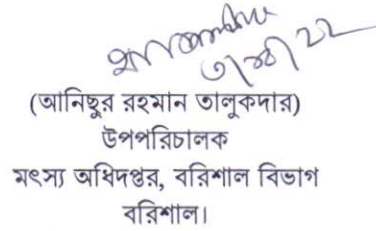 (আনিছুর রহমান তালুকদার)
উপপরিচালক
মৎস্য অধিদপ্তর, বরিশাল বিভাগ
বরিশাল।